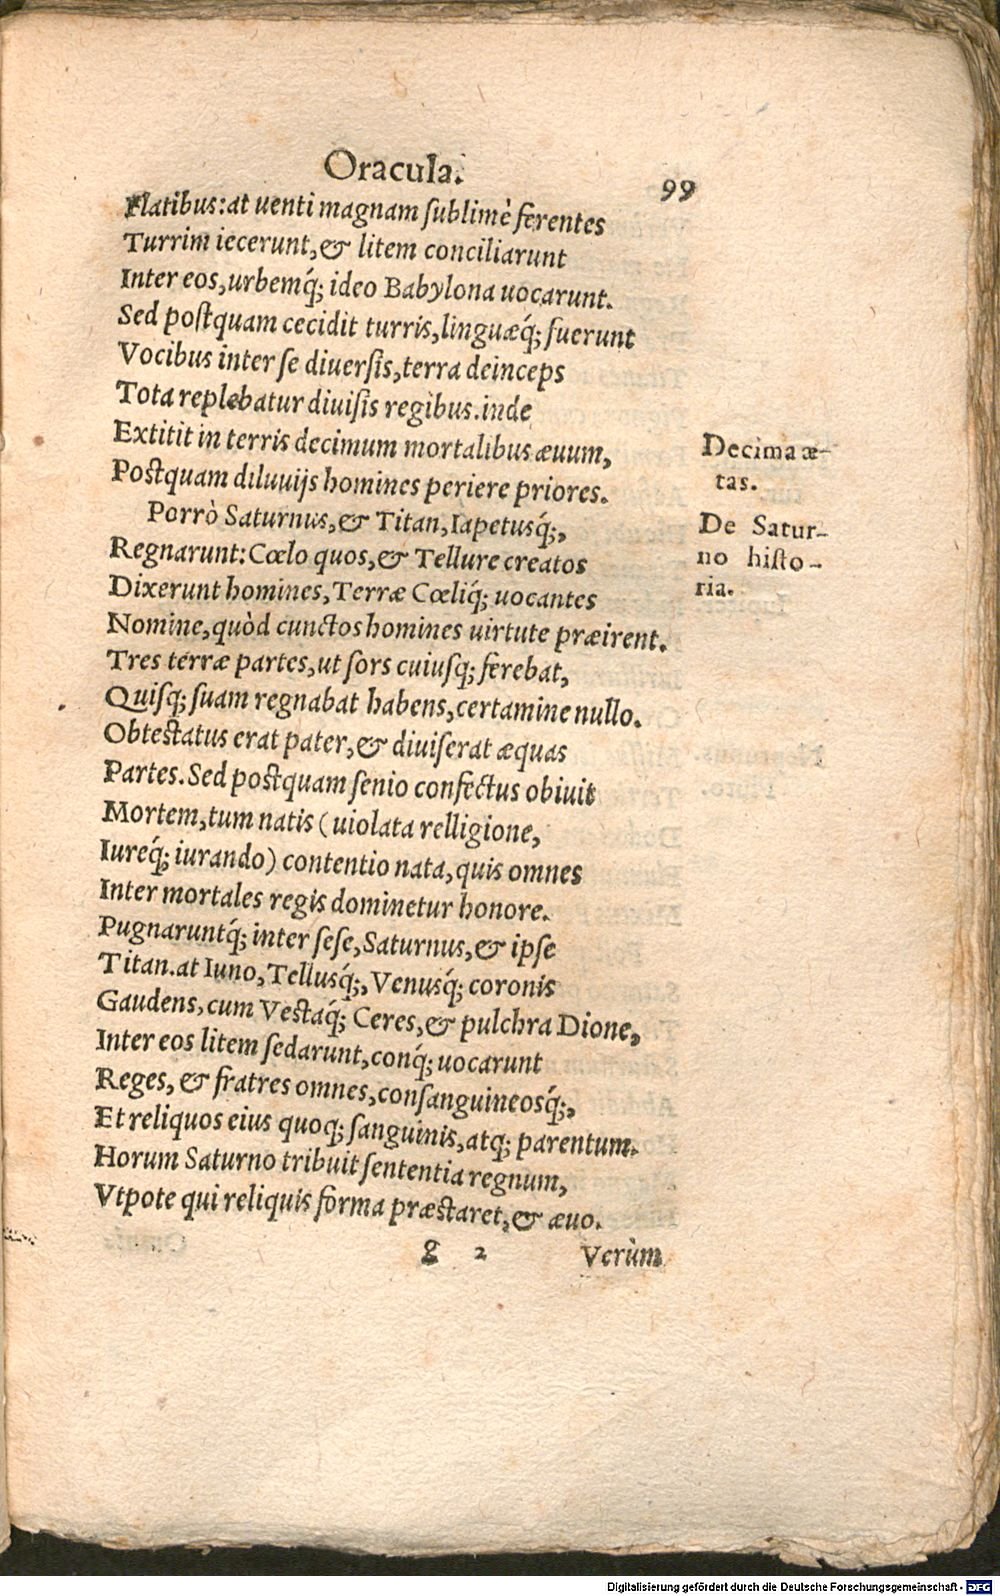 Oracula.
99
Flatibus: at uenti magnam ſublimè ferentes
Turrim iecerunt, & litem conciliarunt
Inter eos, urbemq́; ideo Babylona uocarunt.
Sed poſtquam cecidit turris, linguæq́; fuerunt
Vocibus inter ſe diuerſis, terra deinceps
Tota replebatur diuiſis regibus. inde
Extitit in terris decimum mortalibus æuum,
Poſtquam diluuijs homines periere priores.
Decima æ-
tas.
Porrò Saturnus, & Titan, Iapetusq́;,
Regnarunt: Cœlo quos, & Tellure creatos
Dixerunt homines, Terræ Cœliq́; uocantes
De Satur-
no hiſto-
ria.
Nomine, quòd cunctos homines uirtute præirent.
Tres terræ partes, ut ſors cuiuſq; ferebat,
Quiſq; ſuam regnabat habens, certamine nullo.
Obteſtatus erat pater, & diuiſerat æquas
Partes. Sed poſtquam ſenio confectus obiuit
Mortem, tum natis (uiolata relligione,
Iureq́; iurando) contentio nata, quis omnes
Inter mortales regis dominetur honore.
Pugnaruntq́; inter ſeſe, Saturnus, & ipſe
Titan. at Iuno, Tellusq́;, Venusq́; coronis
Gaudens, cum Veſtaq́; Ceres, & pulchra Dione,
Inter eos litem ſedarunt, conq́; uocarunt
Reges, & fratres omnes, conſanguineosq́;,
Et reliquos eius quoq; ſanguinis, atq; parentum.
Horum Saturno tribuit ſententia regnum,
Vtpote qui reliquis forma præſtaret, & æuo.
g 2
Verùm
Digitalisierung gefördert durch die Deutsche Forschungsgemeinschaft - DFG